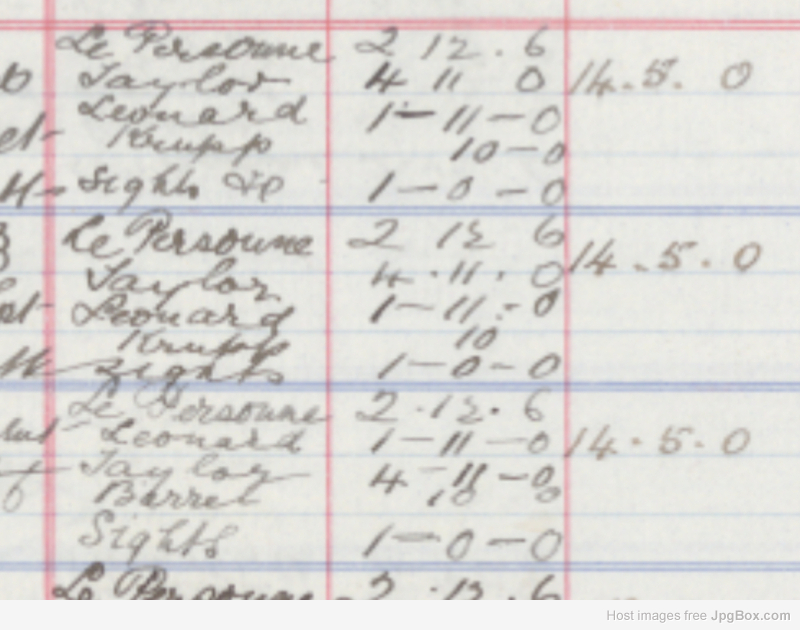 Le Personne 2 12 . 6
o Taylor 4 11 0 14.5. 0
Leonard 1-11-0
et- Krupp 10-0
Sights &c 1-0-0
Le Personne 2 12 6 14.5.0
Taylor 4.11.0
Leonard 1-11-0
Krupp 10
Sights 1-0-0
Le Personne 2.12.6
Leonard 1-11-0 14.5.0
Taylor 4-11-0
Barrel 10 0
Sights 1-0-0
Le Personne 2.12.6
Host images free JpgBox.com